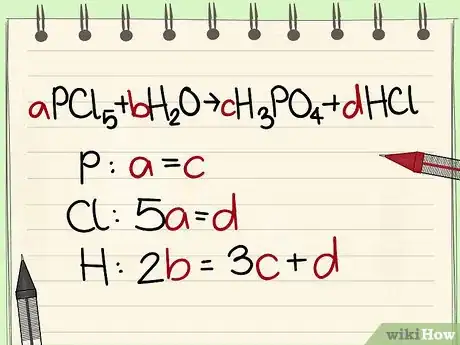 aPCl₅+bH₂O→cH₃PO₄+dHCl
P: a=c
Cl: 5a=d
H: 2b=3c+d
wikiHow